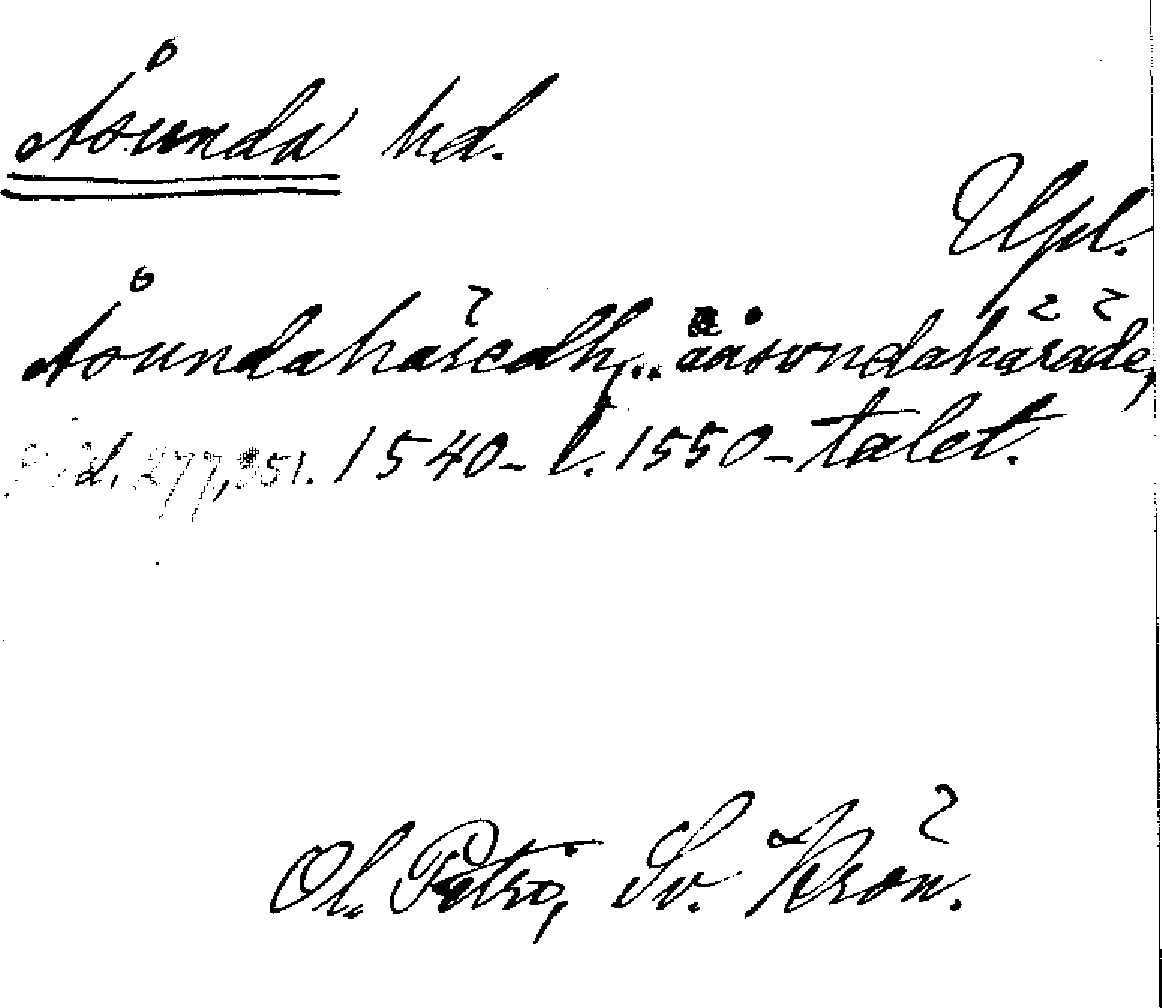 Åsunda hd.
Upl.
Åsundahäredh, .. aasondahäräde,
277, 351. 1540- l. 1550-talet.
Ol. Petri, Sv. Krön.